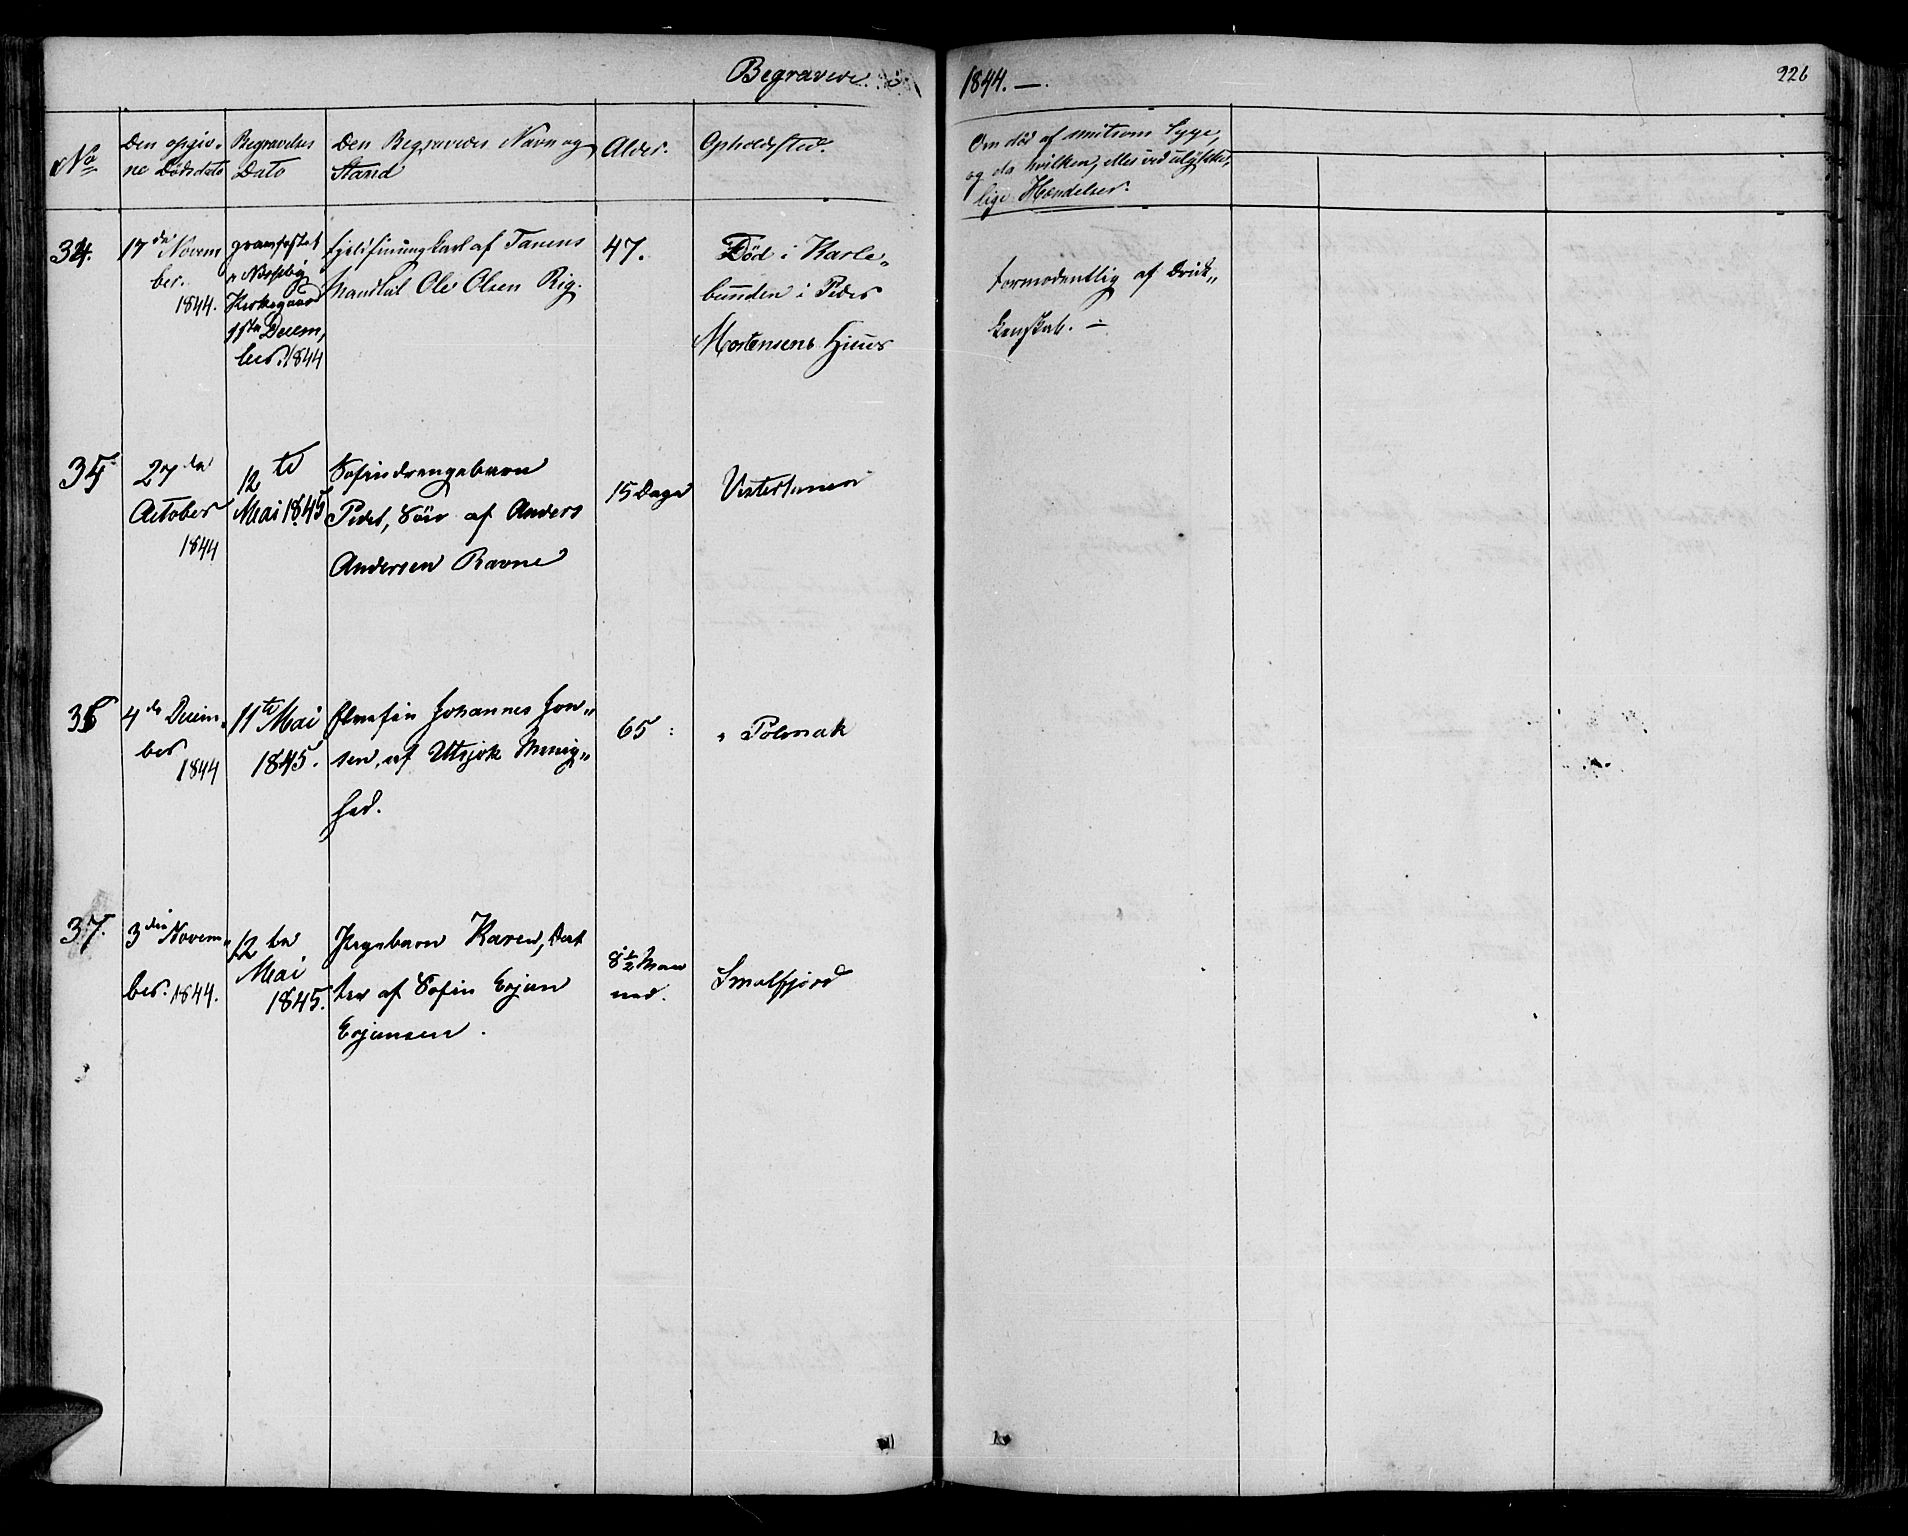 Begravede
1844. —
226
No
Den opgiv-
ne Dødsdato
Begravelses
Dato
Den Begravedes Navn og
Stand
Alder.
Opholdsted.
Om død af smitsom Syge,
og da hvilken, eller ved ulykke-
lige Hændelser.
34.
17de Novem
ber.
1844.
Kirkegaard
Decem,
ber. 1844
af Tanens
Ole Olsen Rig.
47.
Død i Karle-
bunden i Peder
Mortensens Huus
formodentlig af Drik-
kenskab. —
35
27de
October
1844
12te
Mai 1845
Søfindrengebarn
Peder, Søn af Anders
Andersen Ravne
15 Dage
Vestertanen
36
4de Decem-
ber
1844
11te Mai
1845.
Elvefin Johannes Jon-
sen, af Utsjok Menig-
hed.
65
Polmak
37.
3die Novem-
ber. 1844.
12te
Mai
1845.
Pigebarn Karen, Dat
ter af Søfin Erjan
Erjansen.
8½ Maa
ned.
Smalfjord